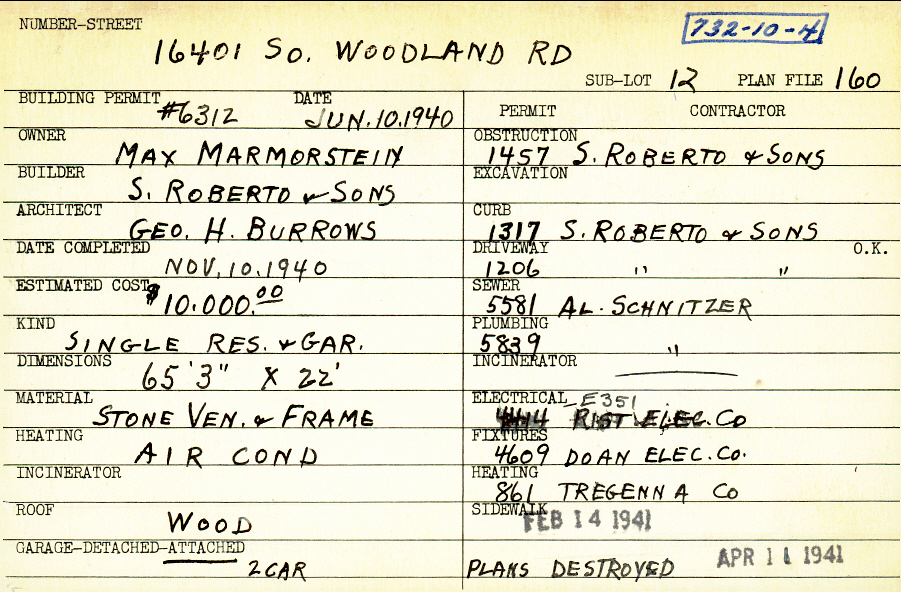 NUMBER-STREET
732-10-4
16401 SO. WOODLAND RD
SUB-LOT 12 PLAN FILE 160
BUILDING PERMIT #6312 DATE JUN.10.1940
OWNER MAX MARMORSTEIN
BUILDER S. ROBERTO & SONS
ARCHITECT GEO. H. BURROWS
DATE COMPLETED NOV.10.1940
ESTIMATED COST $10.000.00
KIND SINGLE RES. & GAR.
DIMENSIONS 65'3" X 22'
MATERIAL STONE VEN. & FRAME
HEATING AIR COND
INCINERATOR
ROOF WOOD
GARAGE-DETACHED-ATTACHED
2 CAR
PERMIT CONTRACTOR
OBSTRUCTION
1457 S. ROBERTO & SONS
EXCAVATION
CURB
1317 S. ROBERTO & SONS
DRIVEWAY O.K.
1206 " "
SEWER
5581 AL. SCHNITZER
PLUMBING
5839 "
INCINERATOR
ELECTRICAL E351
RIST ELEC. CO
FIXTURES
4609 DOAN ELEC. CO.
HEATING
861 TREGENNA CO
SIDEWALK
FEB 14 1941
PLANS DESTROYED APR 11 1941